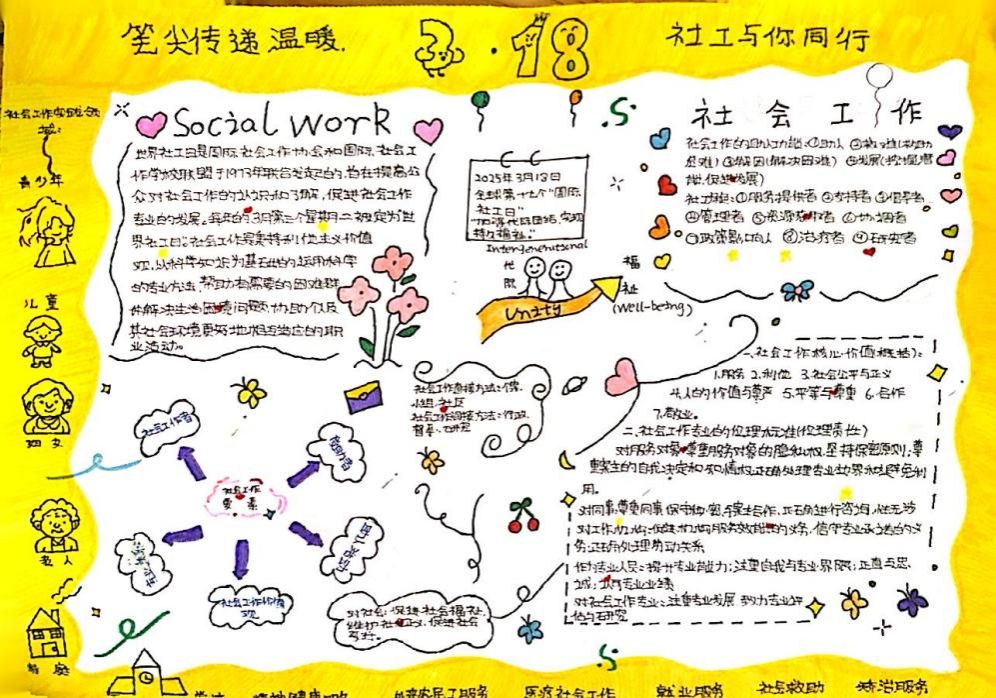 笔尖传递温暖.
3·18
社工与你同行
社会工作
青少年
儿童
妇女
老人
家庭
Social work
世界社工日是国际社会工作协会和国际社会工
作学校联盟于1973年联合发起的,旨在提高公
众对社会工作的认识和了解,促进社会工作
专业的发展。每年的3月第三个星期二被定为世
界社工日。社会工作是秉持利他主义价值
观,以科学知识为基础的运用科学
的专业方法,帮助有需要的困难群
体解决生活困境问题,协助个人及
其社会环境更好地相互适应的职
业活动。
2025年3月18日
全球第十九个"国际
社工日"
"加强代际团结,实现
持久福祉。"
Intergenerational
代际
福祉
Unity
(Well-being)
社会工作
社会工作的目的功能:①助人
难) ③解困(解决困难) ④发展(挖掘潜
能,促进发展)
社工功能:①服务提供者 ②支持者 ③倡导者
④管理者 ⑤资源获取者 ⑥协调者
⑦政策影响人 ⑧治疗者 ⑨研究者
社会工作直接方法:个案,
小组,社区
社会工作间接方法:行政,
督导,研究
社会工作
要素
社会工作者
受助者
社会工作价值
观
对社会:促进社会福祉,
维护社会正义,促进社会
一、社会工作核心价值(概括):
1.服务 2.利他 3.社会公平与正义
4.人的价值与尊严 5.平等与尊重 6.合作
7.敬业。
二、社会工作专业的伦理标准(伦理责任)
对服务对象:尊重服务对象的隐私权,坚持保密原则;尊
重案主的自我决定和知情权,正确处理专业边界
用。
对同事:尊重同事,保守秘密,合作,正确进行咨询
对工作机构:
务;正确处理劳动关系
作为专业人员:提升专业能力;注重自我与专业界限;正直与忠
诚;
对社会工作专业:注重专业发展,致力专业评
估与研究
学校
精神健康服务
农民工服务
医疗社会工作
就业服务
社会救助
矫治服务